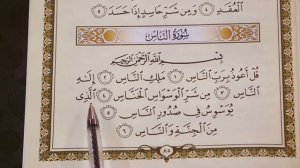 ٱلْعُقَدِ ٤ وَمِن شَرِّ حَاسِدٍ إِذَا حَسَدَ ٥
سُورَةُ النَّاسِ
بِسْمِ ٱللَّهِ ٱلرَّحْمَٰنِ ٱلرَّحِيمِ
قُلْ أَعُوذُ بِرَبِّ ٱلنَّاسِ ١ مَلِكِ ٱلنَّاسِ ٢ إِلَٰهِ
ٱلنَّاسِ ٣ مِن شَرِّ ٱلْوَسْوَاسِ ٱلْخَنَّاسِ ٤ ٱلَّذِى
يُوَسْوِسُ فِى صُدُورِ ٱلنَّاسِ ٥
مِنَ ٱلْجِنَّةِ وَٱلنَّاسِ ٦